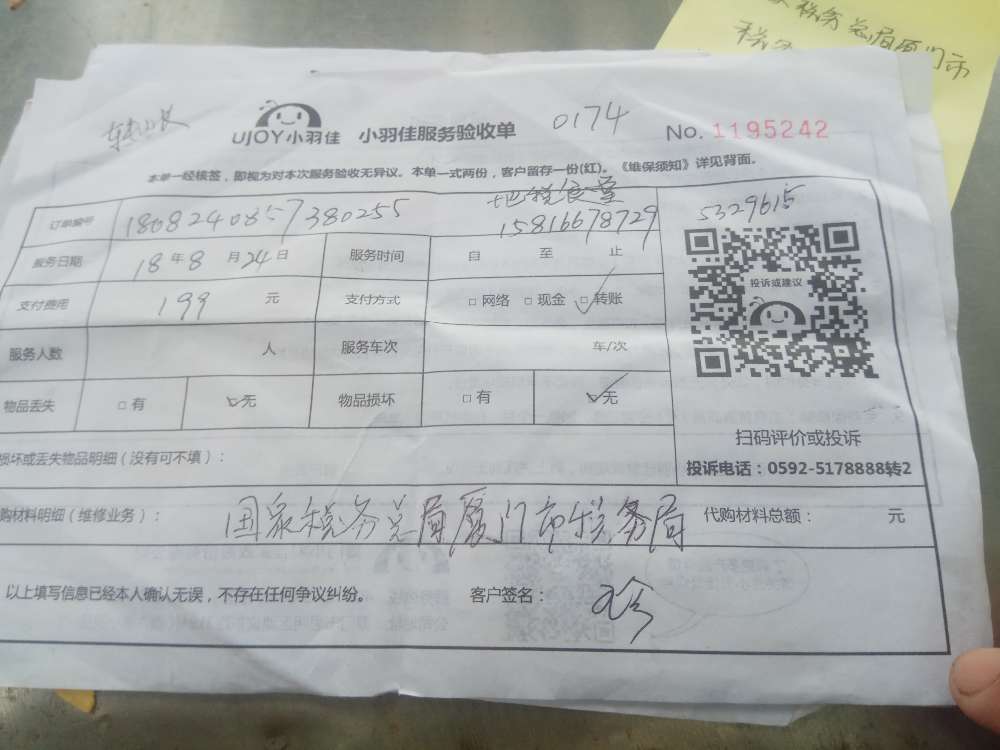 税务总局厦门市
税务
UJOY小羽佳 小羽佳服务验收单 0174 No. 1195242
本单一经核签，即视为对本次服务验收无异议。本单一式两份，客户留存一份(红)。《维保须知》详见背面。
地税食堂
订单编号 1808240857380255 15816678729 5329615
服务日期 18年8月24日 服务时间 自 至 止
投诉或建议
支付费用 199 元 支付方式 □网络 □现金 □转账
服务人数 人 服务车次 车/次
物品丢失 □有 □无 物品损坏 □有 □无
扫码评价或投诉
损坏或丢失物品明细（没有可不填）： 投诉电话：0592-5178888转2
购材料明细（维修业务）： 国家税务总局厦门市税务局 代购材料总额： 元
以上填写信息已经本人确认无误，不存在任何争议纠纷。 客户签名：